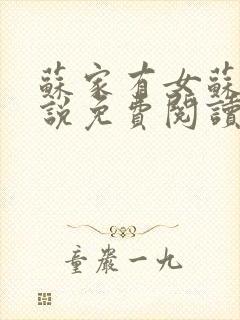 蘇家有女蘇
說免費閱讀
童嚴一九